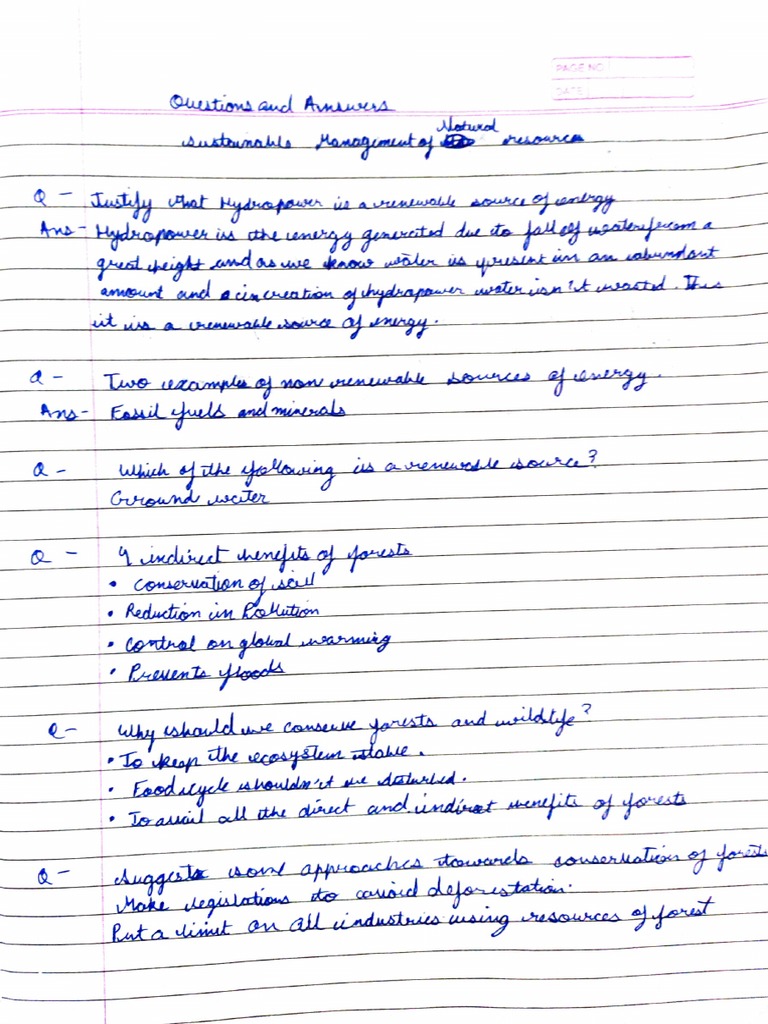 PAGE NO
DATE
Questions and Answers
Sustainable Management of Natural resources
Q - Justify that Hydropower is a renewable source of energy
Ans - Hydropower is the energy generated due to fall of water from a
great height and as we know water is present in an abundant
amount and in creation of hydropower water isn't wasted. Thus
it is a renewable source of energy.
Q - Two examples of non renewable sources of energy.
Ans - Fossil fuels and minerals
Q - Which of the following is a renewable source?
Ground water
Q - 4 indirect benefits of forests
• Conservation of soil
• Reduction in Pollution
• Control on global warming
• Prevents floods
Q - Why should we conserve forests and wildlife?
• To keep the ecosystem stable.
• Food cycle shouldn't be disturbed.
• To avail all the direct and indirect benefits of forests
Q - Suggests some approaches towards conservation of forests
Make legislations to avoid deforestation.
Put a limit on all industries using resources of forest